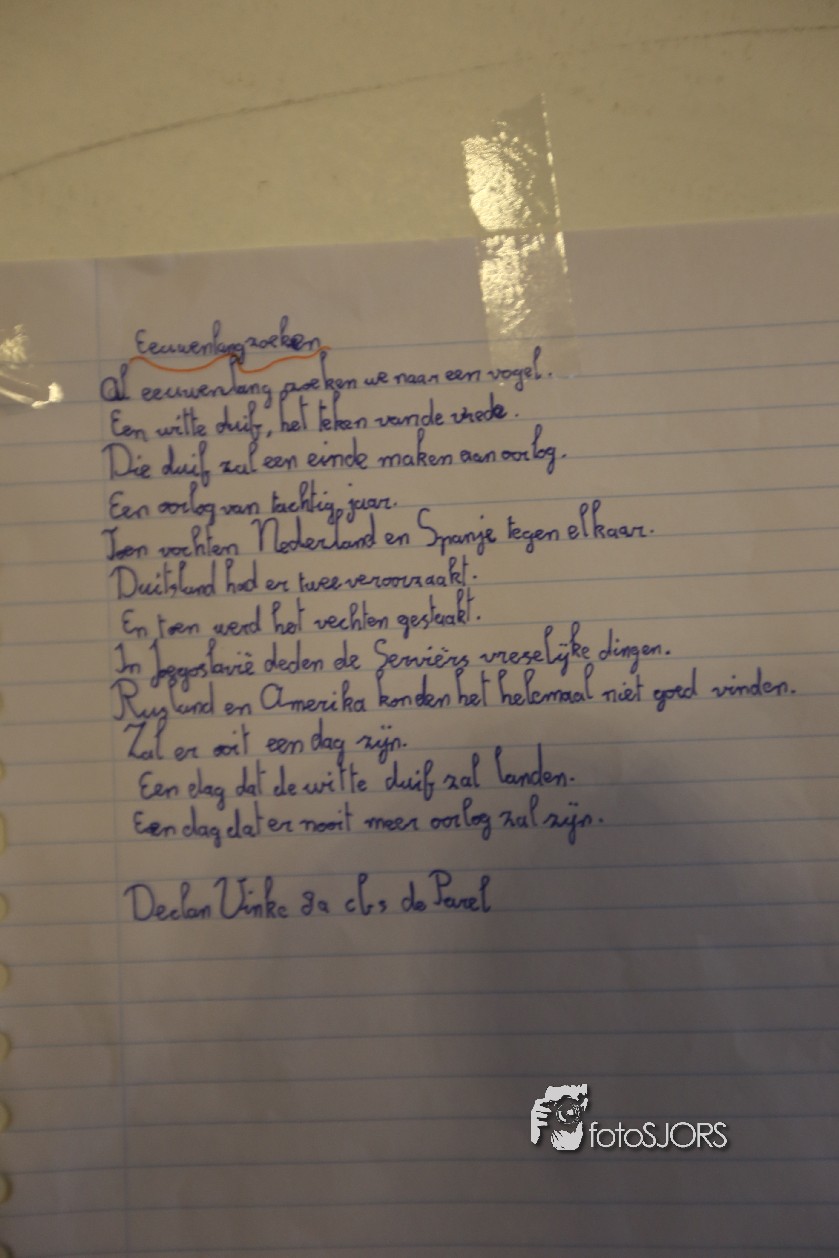 Eeuwenlang zoeken
Al eeuwenlang zoeken we naar een vogel.
Een witte duif, het teken van de vrede.
Die duif zal een einde maken aan oorlog.
Een oorlog van tachtig jaar.
Toen vochten Nederland en Spanje tegen elkaar.
Duitsland had er twee veroorzaakt.
En toen werd het vechten gestaakt.
In Joegoslavië deden de Serviërs vreselijke dingen.
Rusland en Amerika konden het helemaal niet goed vinden.
Zal er ooit een dag zijn.
Een dag dat de witte duif zal landen.
Een dag dat er nooit meer oorlog zal zijn.
Declan Vinke 8a cbs de Parel
fotoSJORS